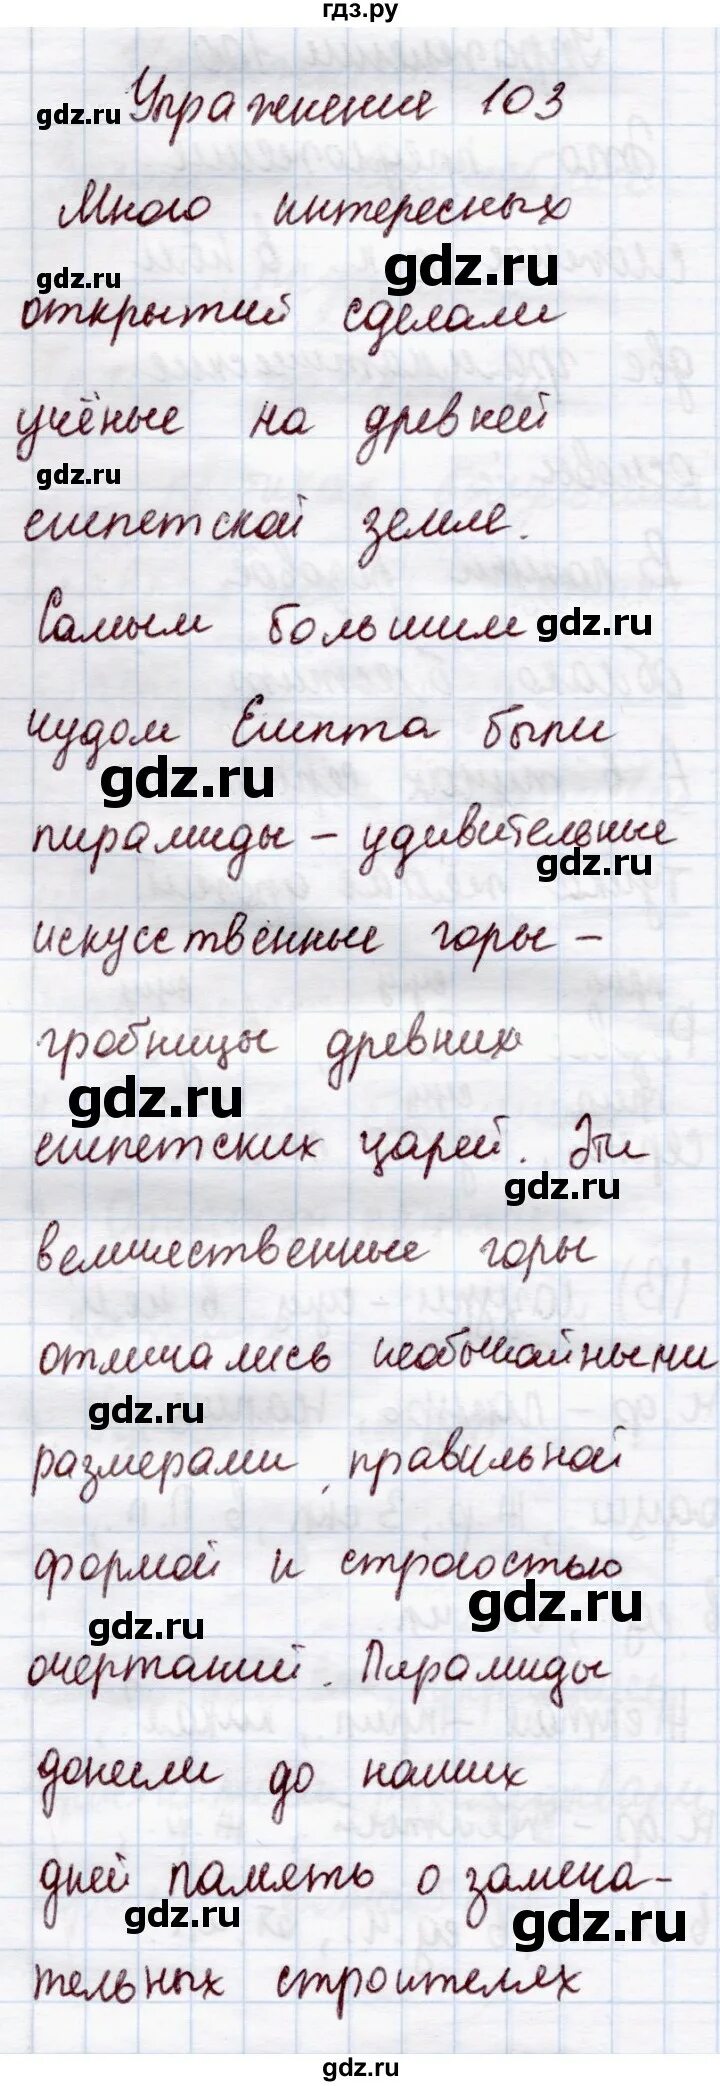 гдз.ру
Упражнение 103
gdz.ru
Много интересных
gdz.ru
gdz.ru
открытий сделали
учёные на древней
gdz.ru
египетской земле.
Самым большим
gdz.ru
чудом Египта были
gdz.ru
пирамиды – удивительные
gdz.ru
искусственные горы –
гробницы древних
gdz.ru
египетских царей. Эти
gdz.ru
величественные горы
отличались необычайными
gdz.ru
размерами, правильной
формой и строгостью
gdz.ru
gdz.ru
очертаний. Пирамиды
донесли до наших
дней память о замеча-
gdz.ru
gdz.ru
тельных строителях
gdz.ru